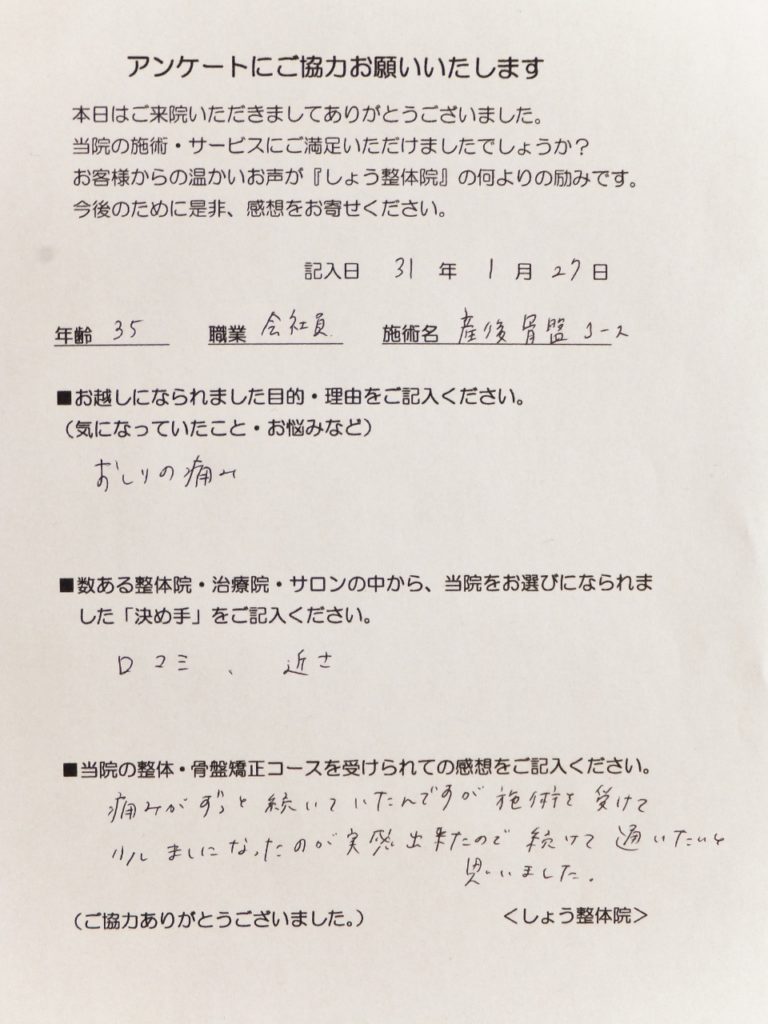 アンケートにご協力お願いいたします
本日はご来院いただきましてありがとうございました。
当院の施術・サービスにご満足いただけましたでしょうか？
お客様からの温かいお声が『しょう整体院』の何よりの励みです。
今後のために是非、感想をお寄せください。
記入日 31 年 1 月 27 日
年齢 35 職業 会社員 施術名 産後骨盤コース
■お越しになられました目的・理由をご記入ください。
（気になっていたこと・お悩みなど）
おしりの痛み
■数ある整体院・治療院・サロンの中から、当院をお選びになられま
した「決め手」をご記入ください。
口コミ、近さ
■当院の整体・骨盤矯正コースを受けられての感想をご記入ください。
痛みがずっと続いていたんですが施術を受けて
少しましになったのが実感出来たので続けて通いたいと
思いました。
（ご協力ありがとうございました。） ＜しょう整体院＞